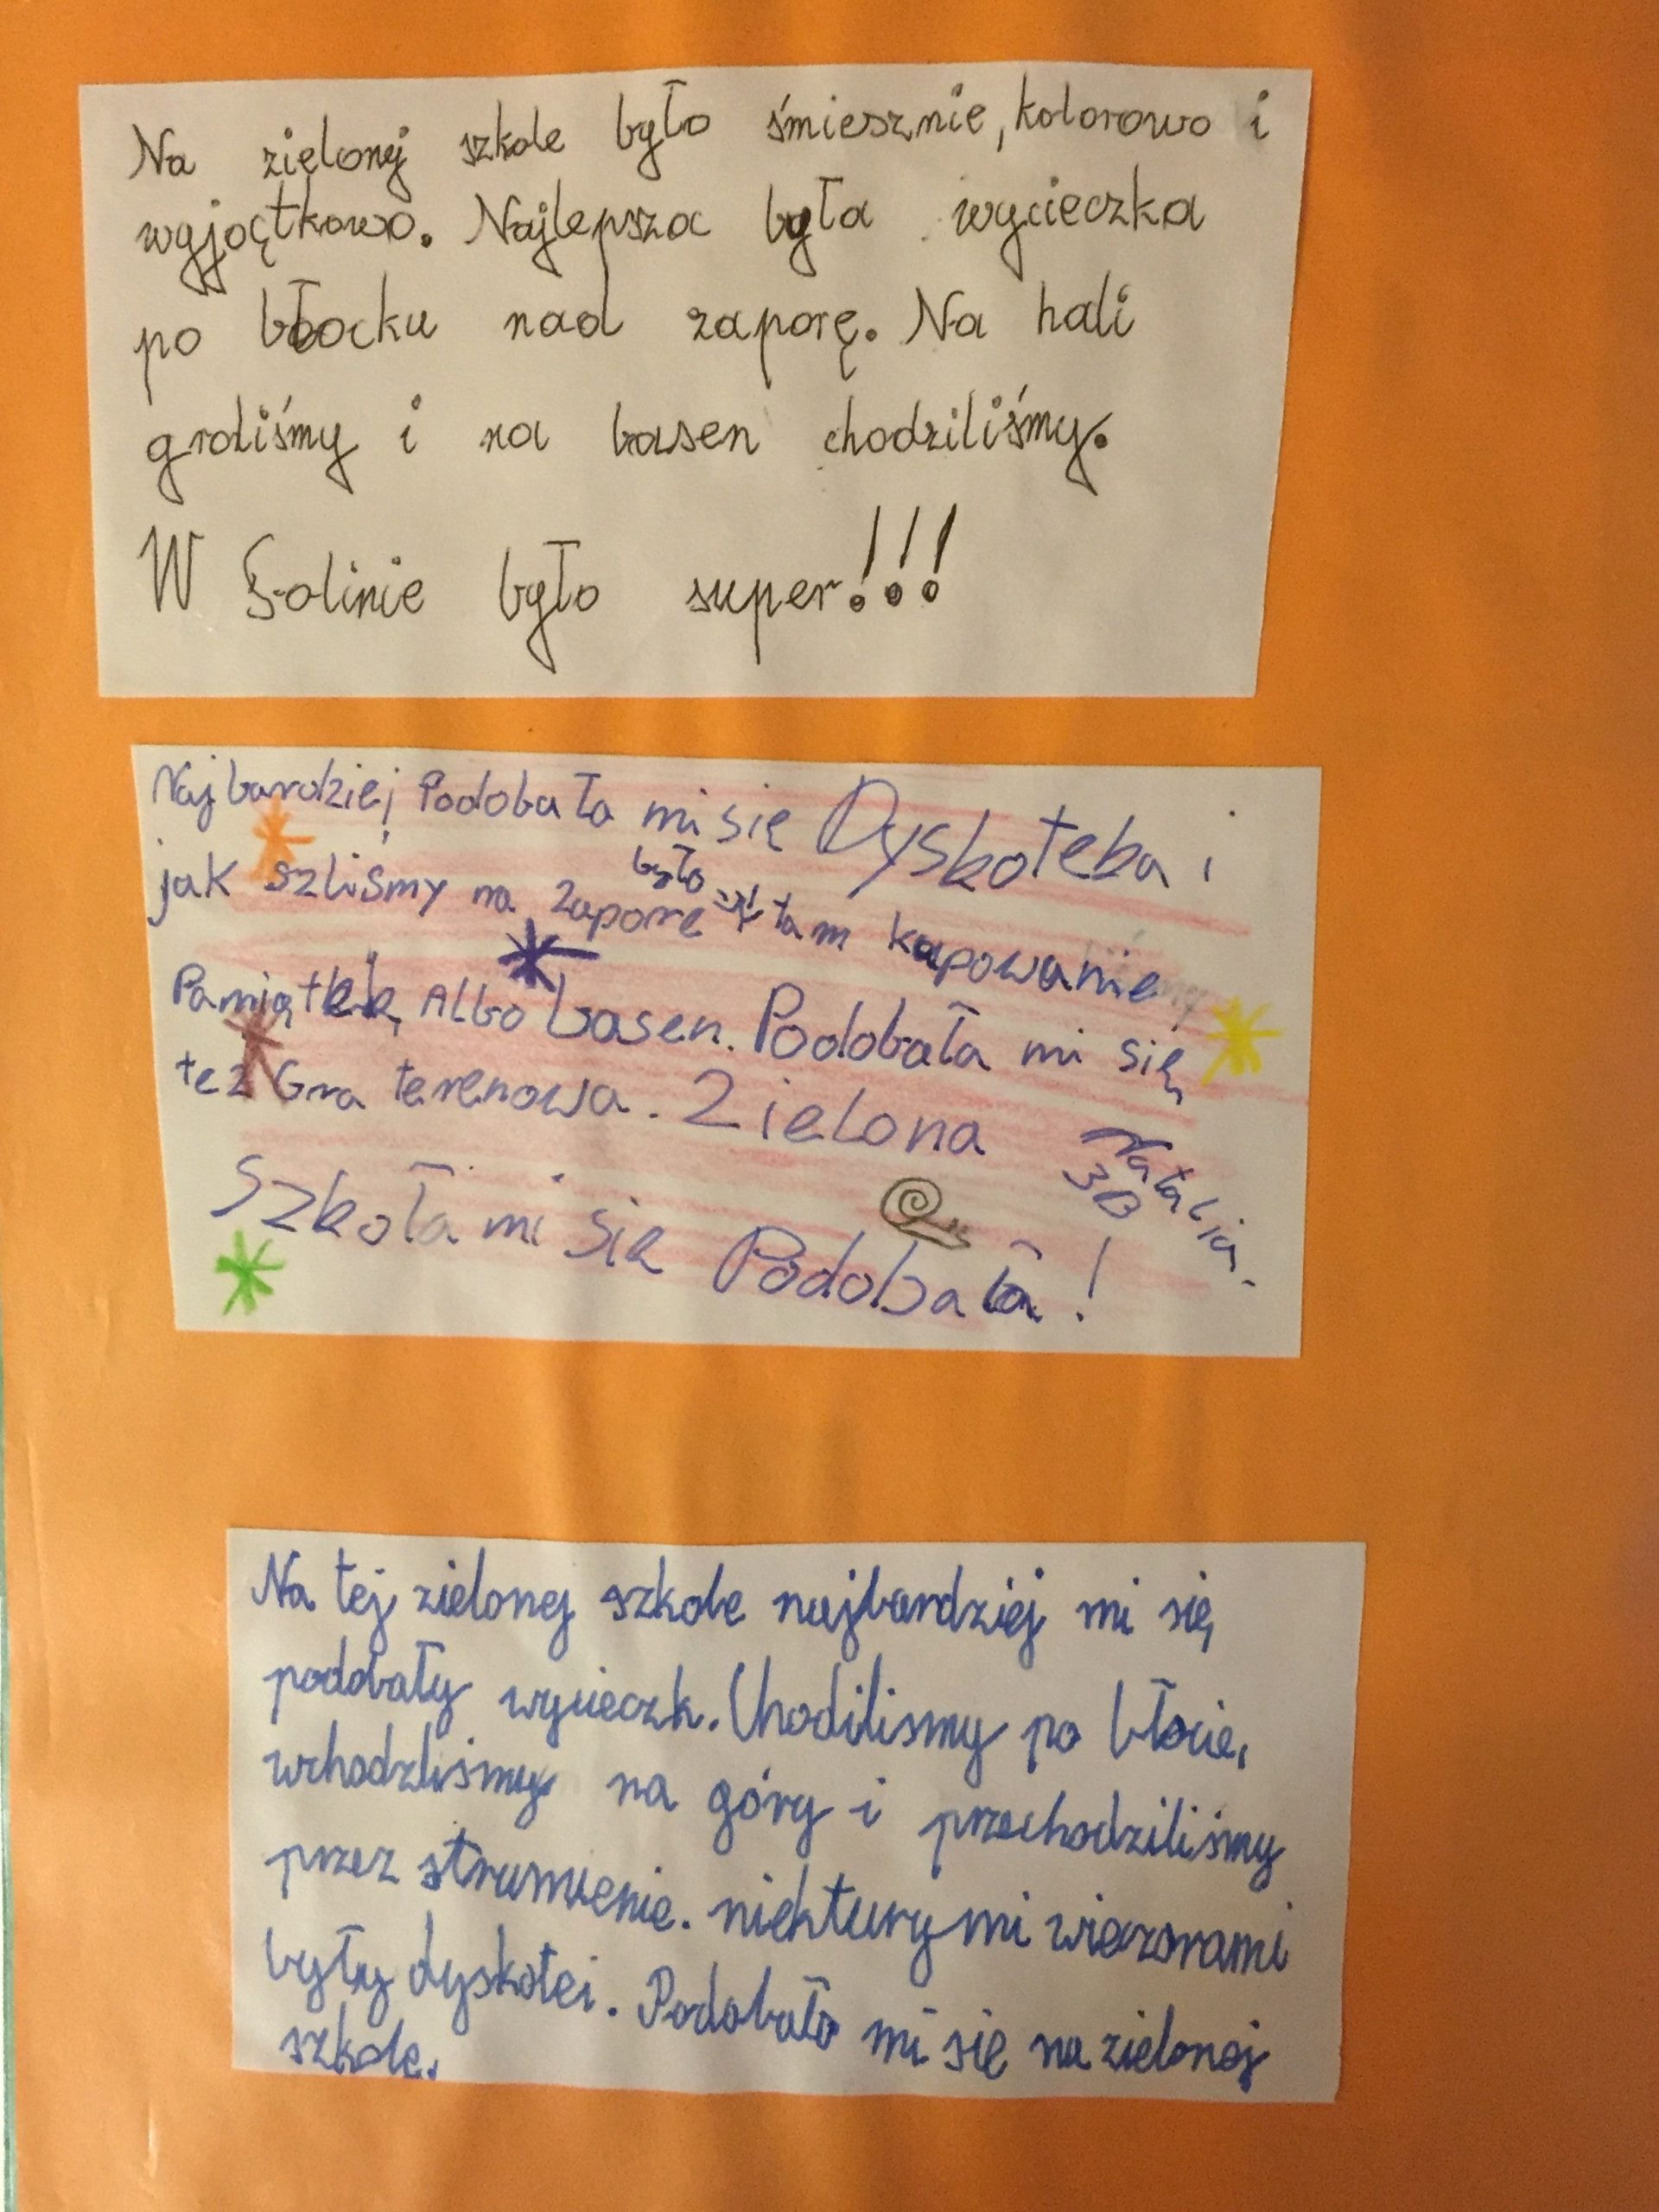 Na zielonej szkole było śmiesznie, kolorowo i
wyjoątkowo. Najlepsza była wycieczka
po błocku nad zaporę. Na hali
graliśmy i na basen chodziliśmy.
W Solinie było super!!!
Najbardziej Podobała mi się Dyskoteka i
jak szliśmy na zapore było tam kupowanie
Pamiątek Albo basen. Podobała mi się
też Gra terenowa. Zielona
Szkoła mi się Podobała!
Natalia
3D
Na tej zielonej szkole najbardziej mi się
podobały wycieczk. Chodiliśmy po błocie,
wchodzliśmy na góry i przechodziliśmy
przez strumienie. niekturymi wieczorami
były dyskotei. Podobało mi się na zielonej
szkole.